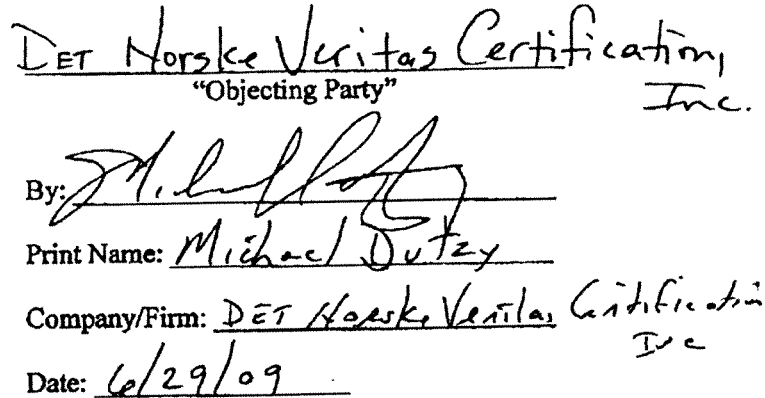 DET Norske Veritas Certification,
Inc.
"Objecting Party"
By:
Print Name: Michael Dutzy
Company/Firm: DET Norske Veritas Certification
Inc
Date: 6/29/09